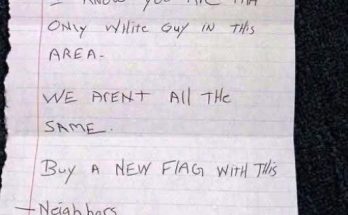 I KNOW YOU ARE THE
ONLY WHITE GUY IN THIS
AREA-
WE ARENT All THE
SAME.
BUY A NEW FlAG WITH THIS
-Neighbors